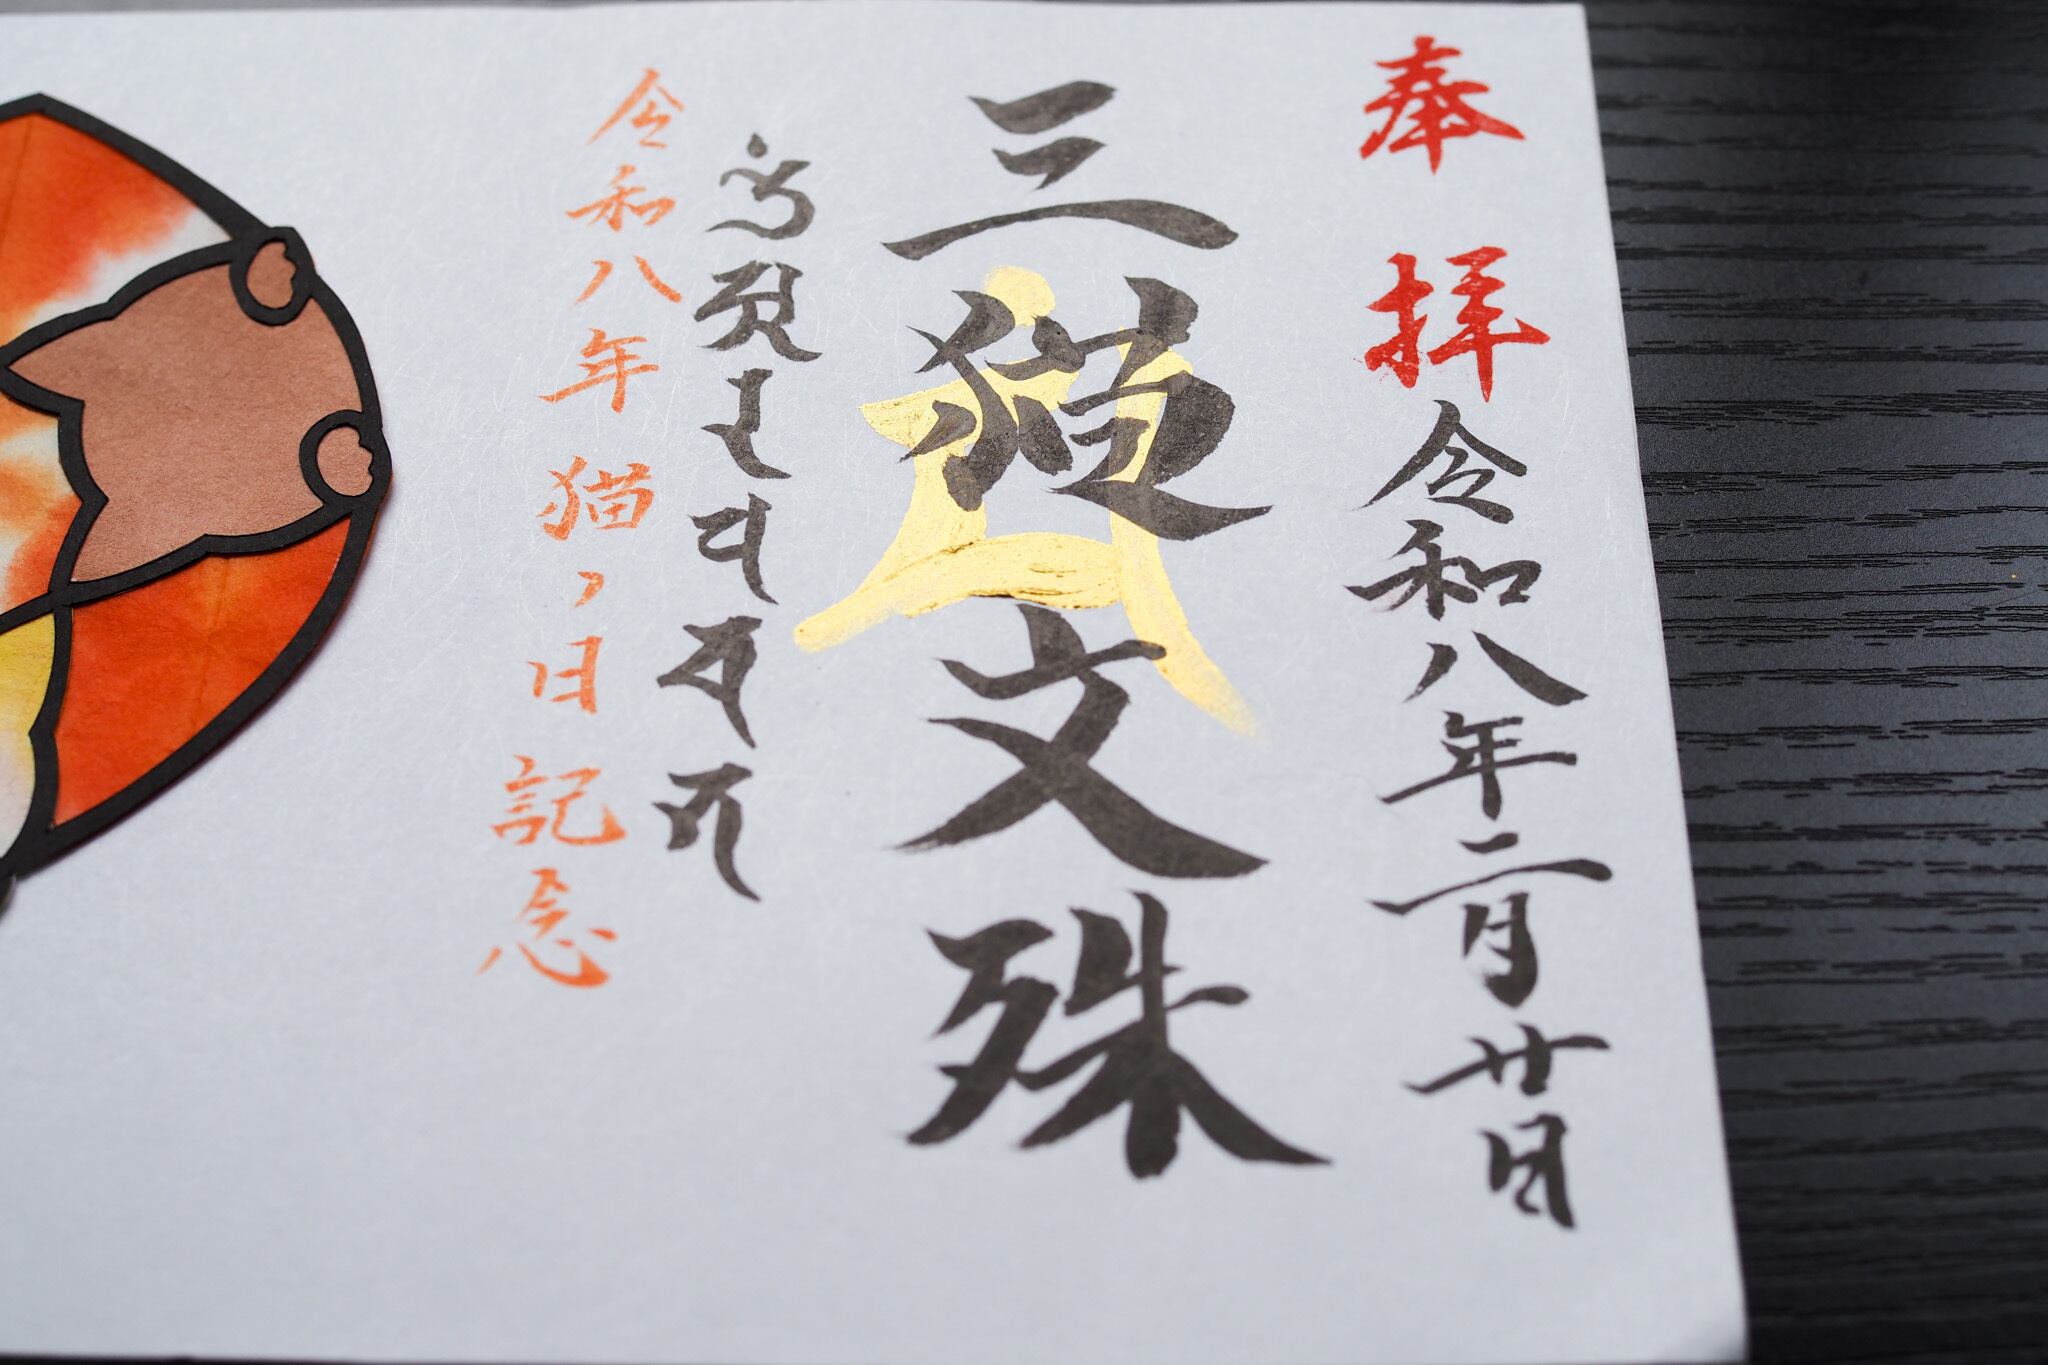 奉拝
令和八年二月廿日
三猫文殊
𑖌𑖼𑖀𑖨𑖢𑖓𑖡
令和八年猫ノ日記念